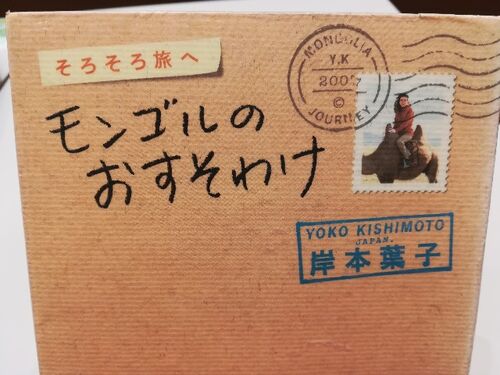 そろそろ旅へ
モンゴルの
おすそわけ
MONGOLIA
Y.K
2007
©
JOURNEY
YOKO KISHIMOTO
JAPAN.
岸本葉子